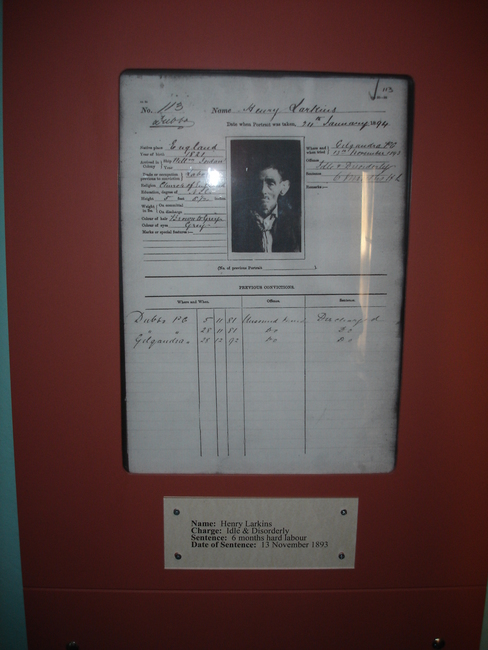 113
No. 113 Name Henry Larkins
Dubbo
Date when Portrait was taken, 24th January 1894
Native place England
Year of birth
Arrived in Colony Ship
Trade or occupation previous to conviction
Religion Church of England
Education, degree of
Height feet inches
Weight in lbs. On committal
On discharge
Colour of hair Brown to Grey
Colour of eyes Grey
Marks or special features:—
Where and when tried Gilgandra P.C.
Offence Idle & Disorderly
Sentence
Remarks:—
(No. of previous Portrait )
PREVIOUS CONVICTIONS.
Where and When. Offence. Sentence.
Dubbo P.C. 5 11 81 Unsound mind Discharged
" " 28 11 81 Do Do
Gilgandra 28 12 92 Do Do
Name: Henry Larkins
Charge: Idle & Disorderly
Sentence: 6 months hard labour
Date of Sentence: 13 November 1893